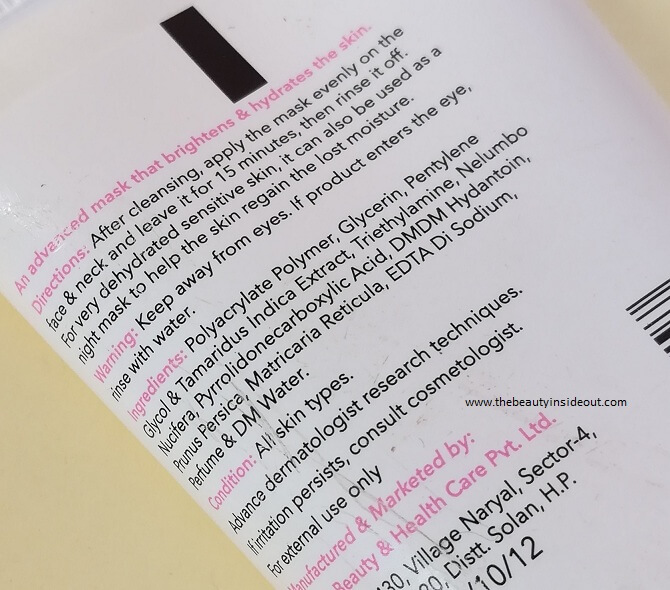 An advanced mask that brightens & hydrates the skin.
Directions: After cleansing, apply the mask evenly on the
face & neck and leave it for 15 minutes, then rinse it off.
For very dehydrated sensitive skin, it can also be used as a
night mask to help the skin regain the lost moisture.
Warning: Keep away from eyes. If product enters the eye,
rinse with water.
Ingredients: Polyacrylate Polymer, Glycerin, Pentylene
Glycol & Tamaridus Indica Extract, Triethylamine, Nelumbo
Nucifera, Pyrrolidonecarboxylic Acid, DMDM Hydantoin,
Prunus Persica, Matricaria Reticula, EDTA Di Sodium,
Perfume & DM Water.
Condition: All skin types.
Advance dermatologist research techniques.
If irritation persists, consult cosmetologist.
For external use only
www.thebeautyinsideout.com
Manufactured & Marketed by:
Beauty & Health Care Pvt. Ltd.
Village Naryal, Sector-4,
Distt. Solan, H.P.
/10/12